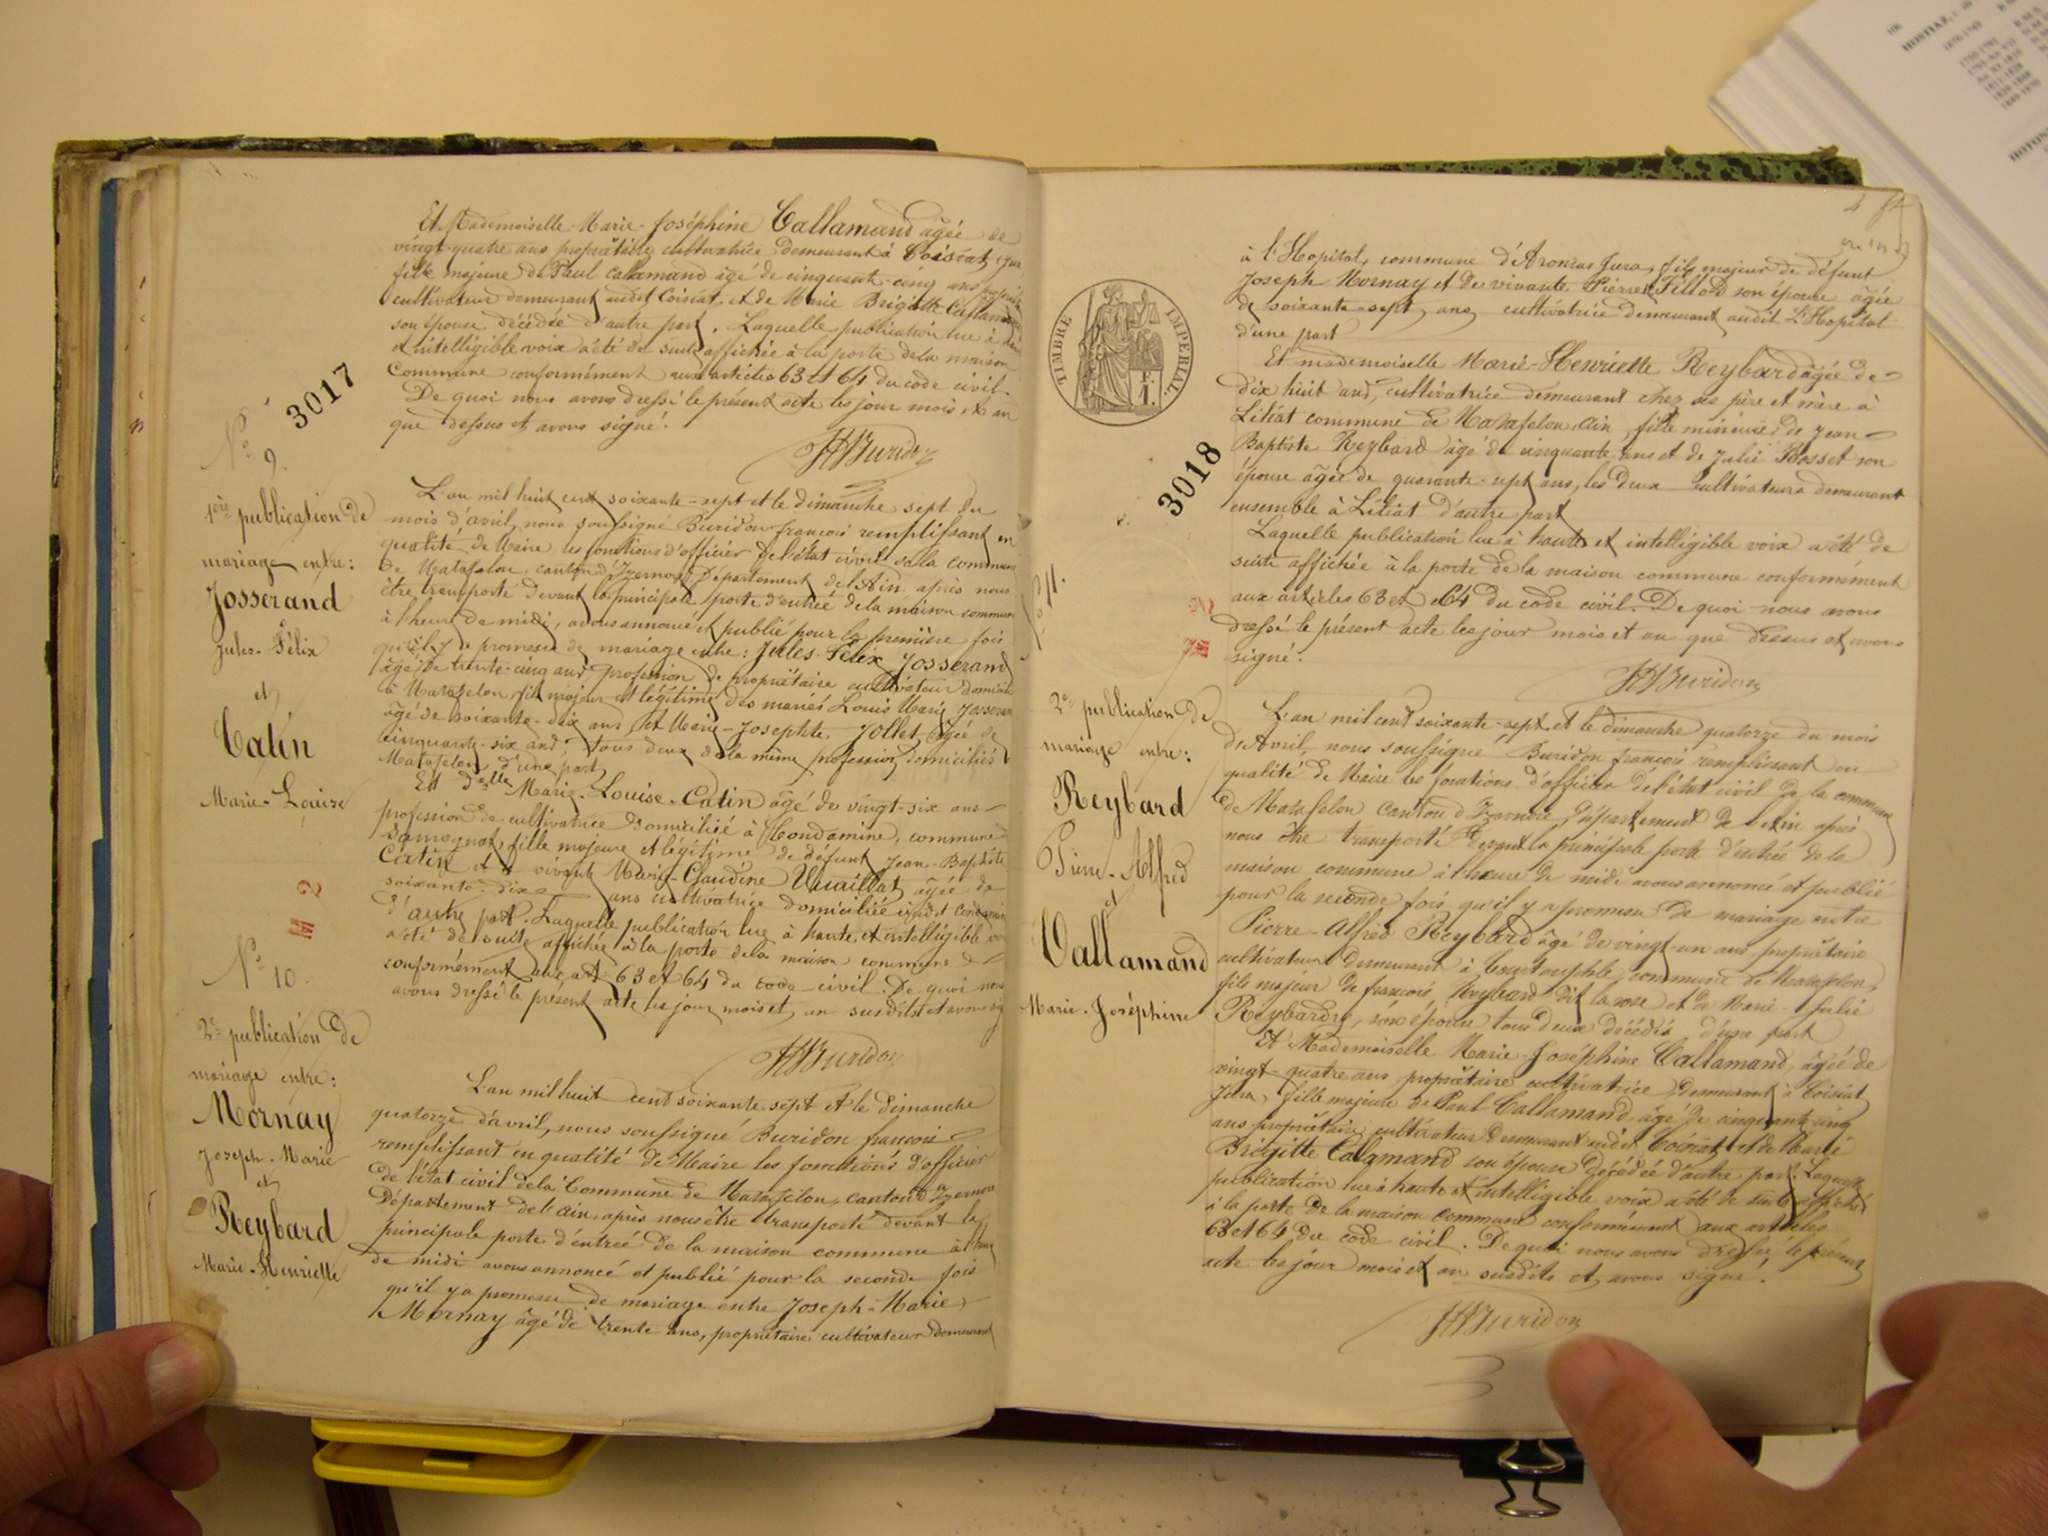 Et Mademoiselle Marie-Joséphine Callamand âgée de
vingt-quatre ans propriétaire cultivatrice demeurant à Coisiat, Jura
fille majeure de Paul Callamand âgé de cinquante-cinq ans
cultivateur demeurant audit Coisiat et de Marie Brigitte Callamand
son épouse décédée d'autre part. Laquelle publication lue à
et intelligible voix a été de suite affichée à la porte de la maison
Commune conformément aux articles 63 et 64 du code civil
De quoi nous avons dressé le présent acte les jour mois et an
que dessus et avons signé.
Buridon
3017
N° 9.
1ère publication de
mariage entre:
Josserand
Jules-Félix
et
Catin
Marie-Louise
L'an mil huit cent soixante-sept et le dimanche sept du
mois d'avril, nous soussigné Buridon françois remplissant en
qualité de Maire, les fonctions d'officier de l'état civil de la commune
de Matafelon, canton d'Izernore, Département de l'Ain après nous
être transporté devant la principale porte d'entrée de la maison commune
à l'heure de midi, avons annoncé et publié pour la première fois
qu'il y a promesse de mariage entre: Jules-Félix Josserand
âgé de trente-cinq ans profession de propriétaire cultivateur
à Matafelon, fils majeur et légitime des mariés Louis Marie Josserand
âgé de soixante-dix ans, et Marie-Josephte Jollet, âgée de
cinquante-six ans, tous deux de la même profession, domiciliés
Matafelon d'une part
Et delle Marie-Louise-Catin âgé de vingt-six ans
profession de cultivatrice domiciliée à Condamine, commune
Samognat, fille majeure et légitime de défunt Jean-Baptiste
Catin et vivante Marie-Claudine Vuaillat, âgée de
soixante-dix ans cultivatrice domiciliée
d'autre part. Laquelle publication lue à haute et intelligible
a été de suite affichée à la porte de la maison commune
conformément aux art. 63 et 64 du code civil. De quoi nous
avons dressé le présent acte les jour mois et an susdits et avons
Buridon
N° 10.
2e publication de
mariage entre:
Mornay
Joseph-Marie
et
Reybard
Marie-Henriette
L'an mil huit cent soixante sept et le dimanche
quatorze d'avril, nous soussigné Buridon françois
remplissant en qualité de Maire les fonctions d'officier
de l'état civil de la Commune de Matafelon, canton d'Izernore
Département de l'ain, après nous être transporté devant la
principale porte d'entrée de la maison commune à
de midi avons annoncé et publié pour la seconde fois
qu'il y a promesse de mariage entre Joseph-Marie
Mornay âgé de trente ans, propriétaire cultivateur demeurant
TIMBRE IMPERIAL
3018
à l'Hopital, commune d'Aromas Jura, fils majeur de défunt
Joseph Mornay et de vivante Pierrette Fillod son épouse âgée
de soixante-sept ans cultivatrice demeurant audit L'Hopital
d'une part
Et mademoiselle Marie-Henriette Reybard âgée de
dix huit ans, cultivatrice demeurant chez ses père et mère à
Litiat commune de Matafelon, ain, fille mineure de Jean-
Baptiste Reybard âgé de cinquante ans et de Julie Bosset son
épouse âgée de quarante-sept ans, les deux cultivateurs demeurant
ensemble à Litiat d'autre part
Laquelle publication lue à haute et intelligible voix a été de
suite affichée à la porte de la maison commune conformément
aux articles 63 et 64 du code civil. De quoi nous avons
dressé le présent acte les jour mois et an que dessus et avons
signé.
Buridon
N° 11.
2e publication de
mariage entre:
Reybard
Pierre-Alfred
et
Callamand
Marie-Joséphine
L'an mil cent soixante-sept et le dimanche quatorze du mois
d'Avril, nous soussigné Buridon françois remplissant en
qualité de Maire les fonctions d'officier de l'état civil de la commune
de Matafelon canton d'Izernore, Département de l'ain après
nous être transporté devant la principale porte d'entrée de la
maison commune à l'heure de midi avons annoncé et publié
pour la seconde fois, qu'il y a promesse de mariage entre
Pierre-Alfred Reybard âgé de vingt-un ans, propriétaire
cultivateur demeurant à commune de Matafelon,
fils majeur de françois Reybard dit la rose et de Marie-Julie
Reybard, son épouse tous deux décédés, d'une part
Et Mademoiselle Marie-Joséphine Callamand, âgée de
vingt-quatre ans propriétaire cultivatrice demeurant à Coisiat
Jura, fille majeure de Paul Callamand âgé de cinquante cinq
ans propriétaire cultivateur demeurant audit Coisiat et de Marie
Brigitte Calamand son épouse décédée d'autre part. Laquelle
publication lue à haute et intelligible voix a été de suite affichée
à la porte de la maison commune conformément aux articles
63 et 64 du code civil. De quoi nous avons dressé le présent
acte les jour mois et an susdits et avons signé.
Buridon